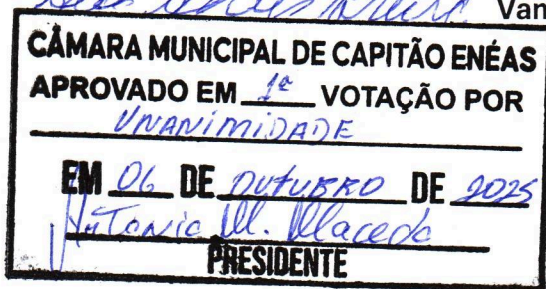 Van
CÂMARA MUNICIPAL DE CAPITÃO ENÉAS
APROVADO EM 1ª VOTAÇÃO POR
UNANIMIDADE
EM 06 DE OUTUBRO DE 2025
Antonio M. Macedo
PRESIDENTE